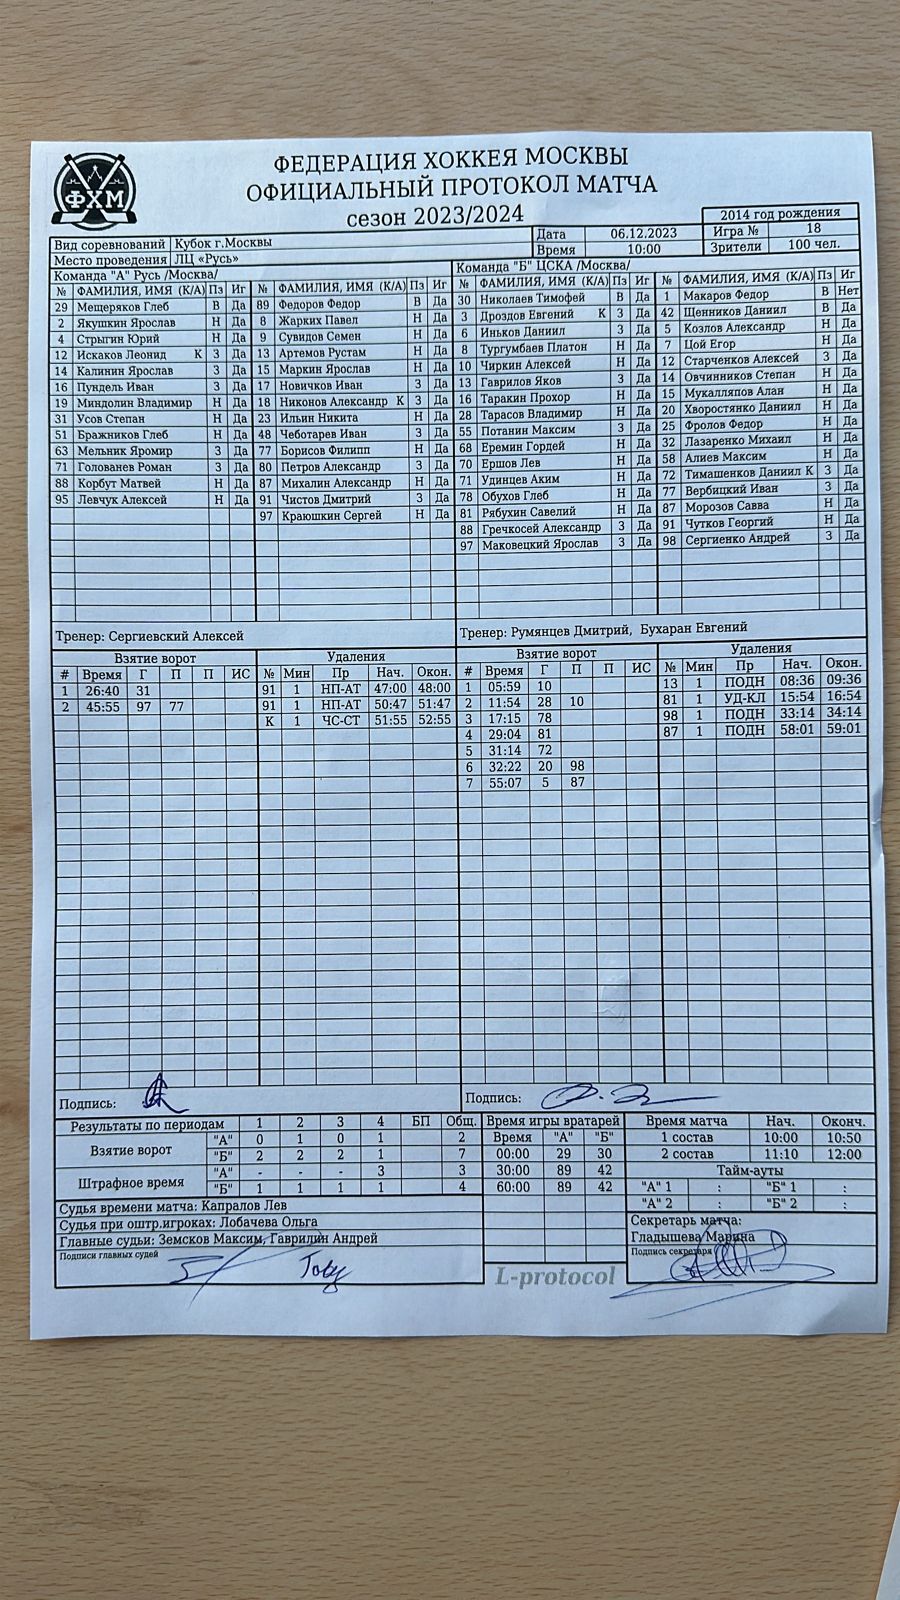 ФХМ
ФЕДЕРАЦИЯ ХОККЕЯ МОСКВЫ
ОФИЦИАЛЬНЫЙ ПРОТОКОЛ МАТЧА
сезон 2023/2024
2014 год рождения
Вид соревнований Кубок г.Москвы Дата 06.12.2023 Игра № 18
Место проведения ЛЦ «Русь» Время 10:00 Зрители 100 чел.
Команда "А" Русь /Москва/
№ ФАМИЛИЯ, ИМЯ (К/А) Пз Иг № ФАМИЛИЯ, ИМЯ (К/А) Пз Иг
29 Мещеряков Глеб В Да 89 Федоров Федор В Да
2 Якушкин Ярослав Н Да 8 Жарких Павел Н Да
4 Стрыгин Юрий Н Да 9 Сувидов Семен Н Да
12 Искаков Леонид К З Да 13 Артемов Рустам Н Да
14 Калинин Ярослав З Да 15 Маркин Ярослав Н Да
16 Пундель Иван З Да 17 Новичков Иван З Да
19 Миндолин Владимир Н Да 18 Никонов Александр К З Да
31 Усов Степан Н Да 23 Ильин Никита Н Да
51 Бражников Глеб Н Да 48 Чеботарев Иван З Да
63 Мельник Яромир З Да 77 Борисов Филипп Н Да
71 Голованев Роман З Да 80 Петров Александр З Да
88 Корбут Матвей Н Да 87 Михалин Александр Н Да
95 Левчук Алексей Н Да 91 Чистов Дмитрий З Да
97 Краюшкин Сергей Н Да
Тренер: Сергиевский Алексей
Команда "Б" ЦСКА /Москва/
№ ФАМИЛИЯ, ИМЯ (К/А) Пз Иг № ФАМИЛИЯ, ИМЯ (К/А) Пз Иг
30 Николаев Тимофей В Да 1 Макаров Федор В Нет
3 Дроздов Евгений К З Да 42 Щенников Даниил В Да
6 Иньков Даниил З Да 5 Козлов Александр Н Да
8 Тургумбаев Платон Н Да 7 Цой Егор Н Да
10 Чиркин Алексей Н Да 12 Старченков Алексей З Да
13 Гаврилов Яков З Да 14 Овчинников Степан Н Да
16 Таракин Прохор Н Да 15 Мукалляпов Алан Н Да
28 Тарасов Владимир Н Да 20 Хворостянко Даниил Н Да
55 Потанин Максим З Да 25 Фролов Федор Н Да
68 Еремин Гордей Н Да 32 Лазаренко Михаил Н Да
70 Ершов Лев Н Да 58 Алиев Максим Н Да
71 Удинцев Аким Н Да 72 Тимашенков Даниил К З Да
78 Обухов Глеб Н Да 77 Вербицкий Иван З Да
81 Рябухин Савелий Н Да 87 Морозов Савва Н Да
88 Гречкосей Александр З Да 91 Чутков Георгий Н Да
97 Маковецкий Ярослав З Да 98 Сергиенко Андрей З Да
Тренер: Румянцев Дмитрий, Бухаран Евгений
Взятие ворот Удаления
# Время Г П П ИС № Мин Пр Нач. Окон.
1 26:40 31 91 1 НП-АТ 47:00 48:00
2 45:55 97 77 91 1 НП-АТ 50:47 51:47
К 1 ЧС-СТ 51:55 52:55
Взятие ворот Удаления
# Время Г П П ИС № Мин Пр Нач. Окон.
1 05:59 10 13 1 ПОДН 08:36 09:36
2 11:54 28 10 81 1 УД-КЛ 15:54 16:54
3 17:15 78 98 1 ПОДН 33:14 34:14
4 29:04 81 87 1 ПОДН 58:01 59:01
5 31:14 72
6 32:22 20 98
7 55:07 5 87
Подпись:
Подпись:
Результаты по периодам 1 2 3 4 БП Общ.
Взятие ворот "А" 0 1 0 1 2
"Б" 2 2 2 1 7
Штрафное время "А" - - - 3 3
"Б" 1 1 1 1 4
Судья времени матча: Капралов Лев
Судья при оштр.игроках: Лобачева Ольга
Главные судьи: Земсков Максим, Гаврилин Андрей
Подписи главных судей
Время игры вратарей
Время "А" "Б"
00:00 29 30
30:00 89 42
60:00 89 42
L-protocol
Время матча Нач. Оконч.
1 состав 10:00 10:50
2 состав 11:10 12:00
Тайм-ауты
"А" 1 : "Б" 1 :
"А" 2 : "Б" 2 :
Секретарь матча:
Гладышева Марина
Подпись секретаря